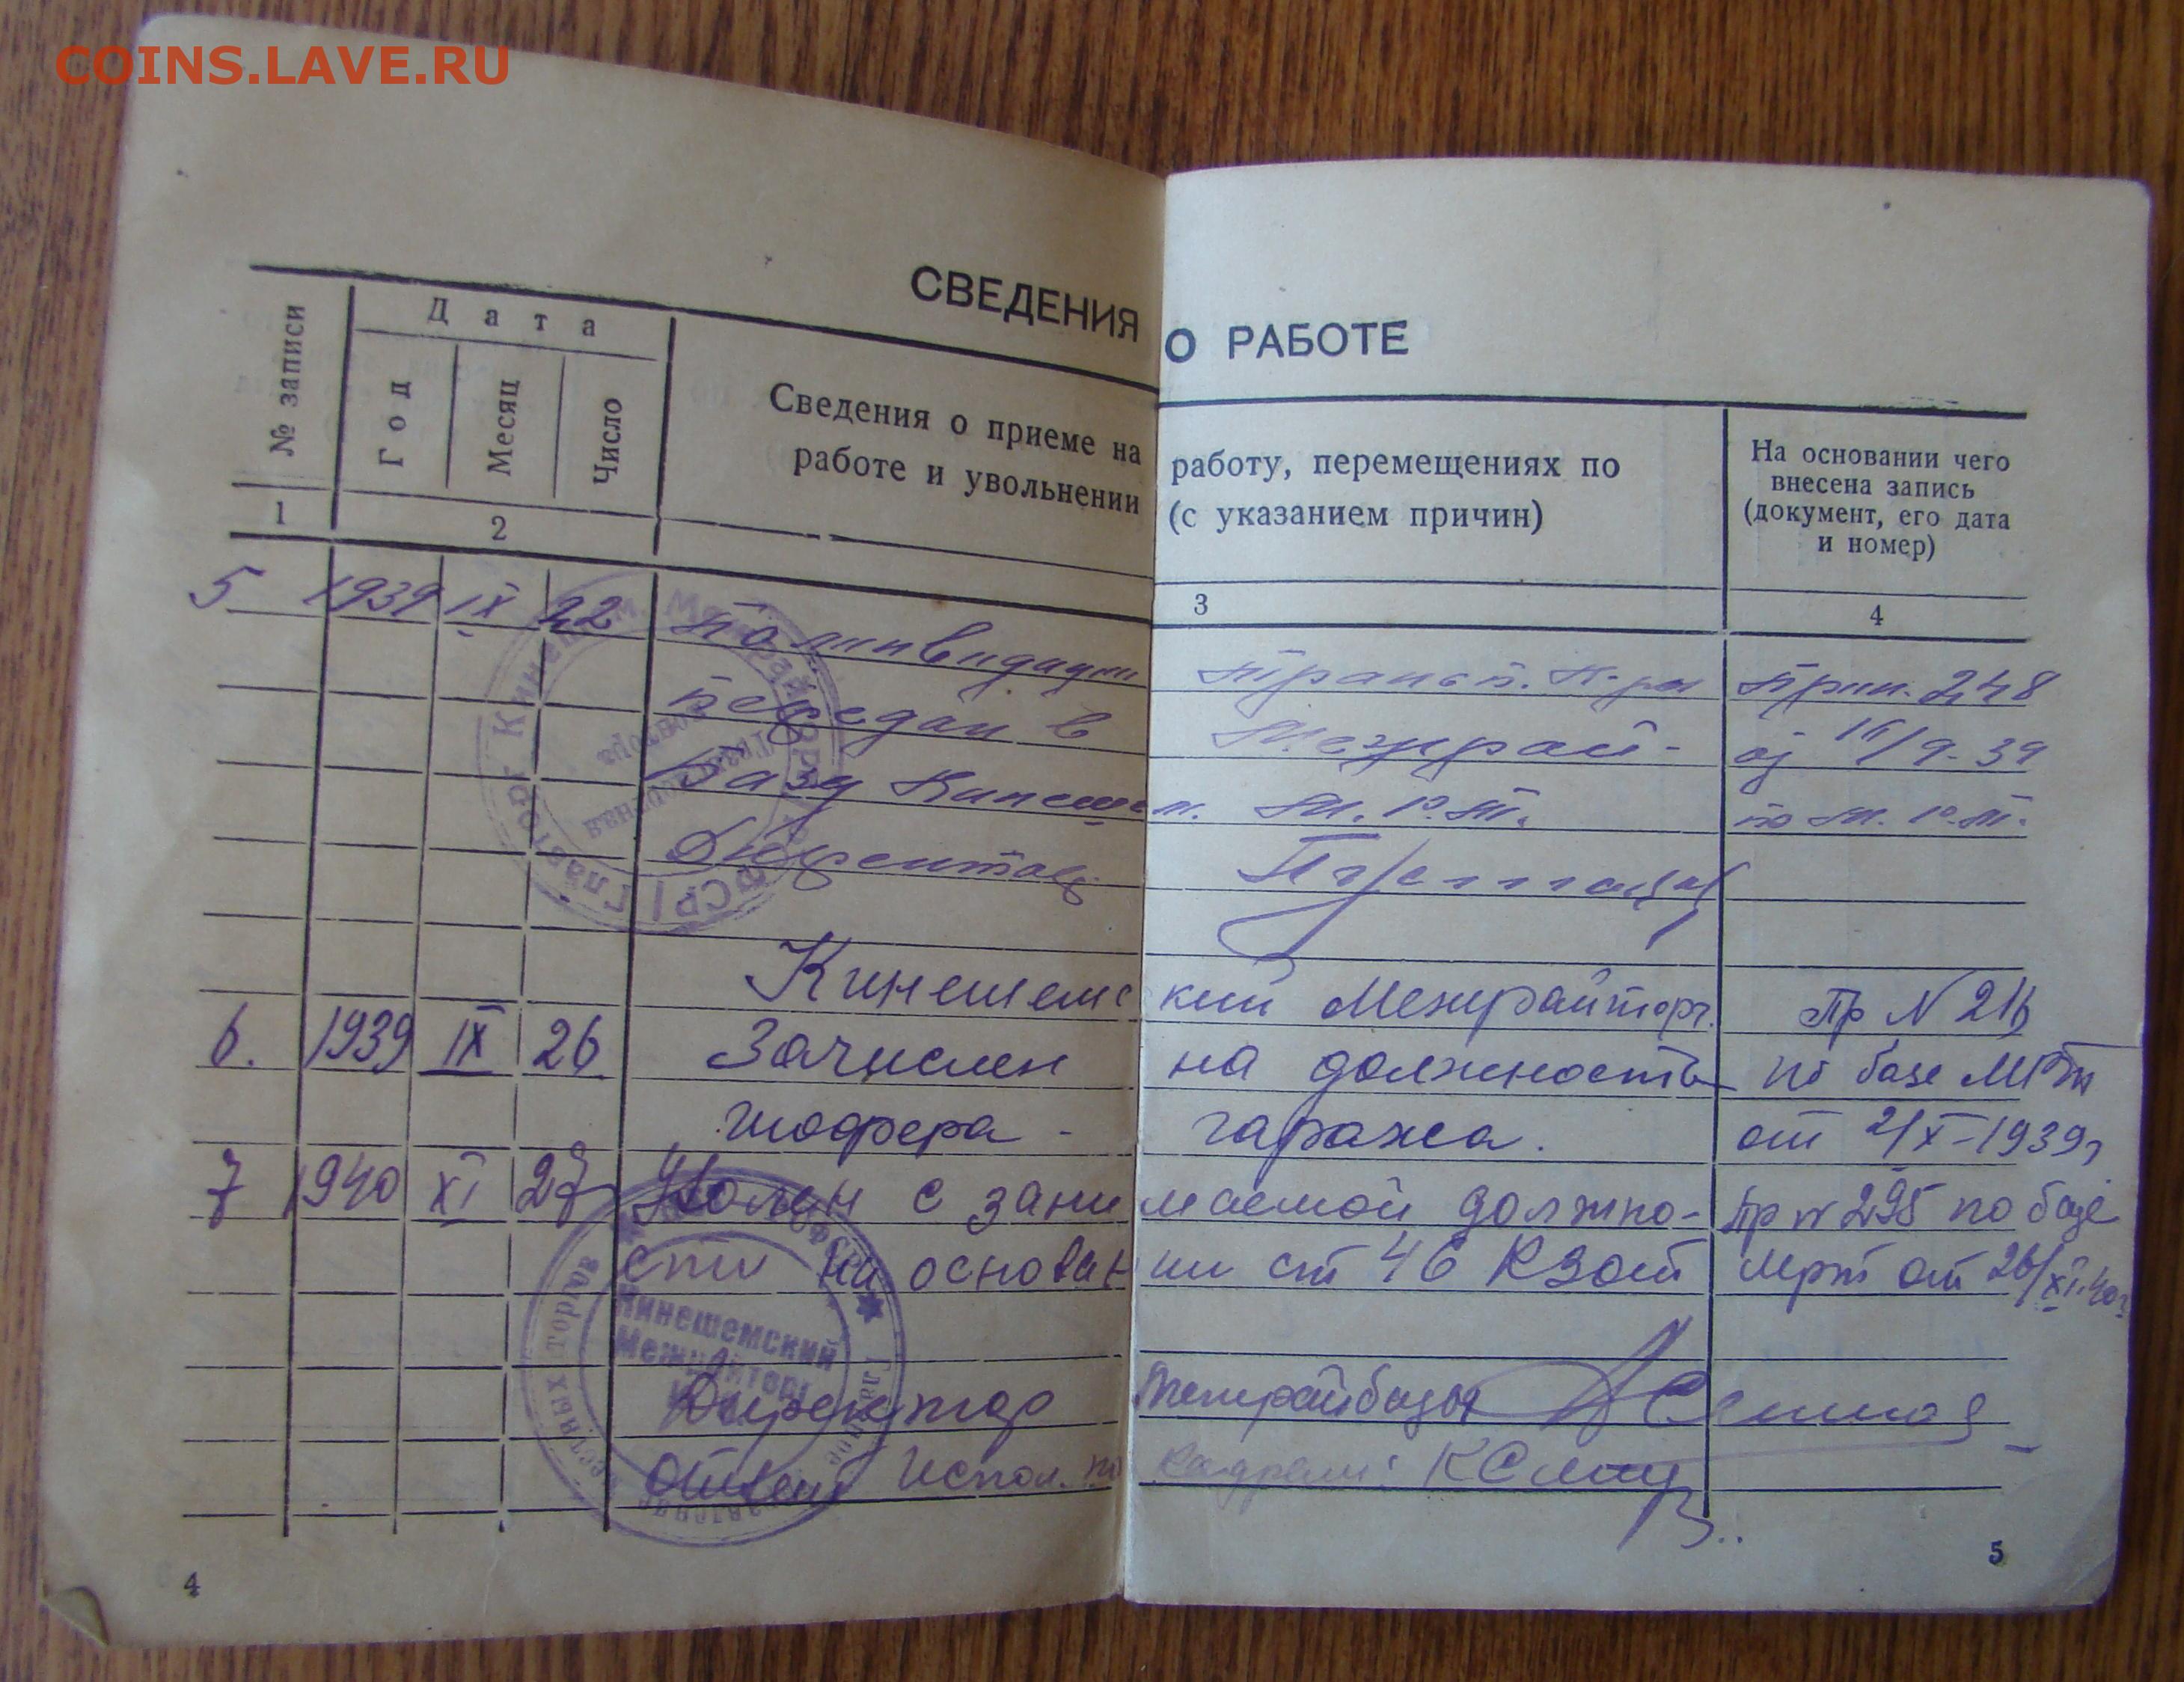 COINS.LAVE.RU
СВЕДЕНИЯ О РАБОТЕ
№ записи
Дата
Год
Месяц
Число
Сведения о приеме на работу, перемещениях по
работе и увольнении (с указанием причин)
На основании чего
внесена запись
(документ, его дата
и номер)
1 2 3 4
5 1939 IX 22 По Трансп.
передан в Межрай-
базу Кинешем. М.Р.Т.
Прик. 248
16/9-39
по М.Р.Т.
Кинешемский Межрайторг.
6. 1939 IX 26 Зачислен на должность
шофера - гаража.
Пр N
по базе МРТ
от 2/X-1939г
7 1940 XI 27 Уволен с занимаемой должно-
сти на основании ст 46 КЗот
Пр N 295 по базе
мрт от 26/XI.40г
Директор Межрайбазы
Ответ Испол. по кадрам:
Кинешемский
Межрайторг
4
5